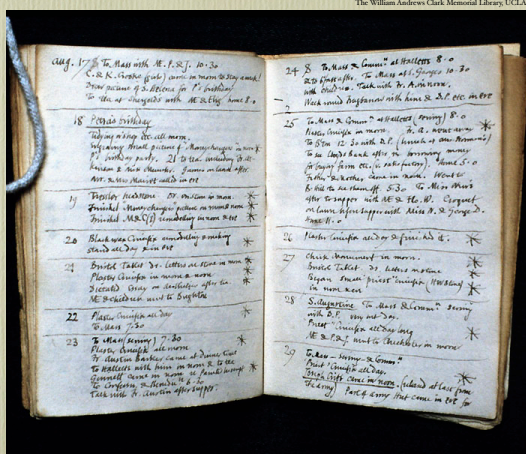 The William Andrews Clark Memorial Library, UCLA
Aug. 17 S To Mass with M.E. P. & J. 10.30
C. & K. Rooke (girls) came in morn to stay a week!
Drew picture of S. Helena for P's birthday
To tea at with ME & Eliz home 8.0
18 Petra's birthday
Tidying w'shop etc. all morn.
small picture of Moneychangers in morn &
P's birthday party. 21 to tea including Fr.
& Mrs Games on land after.
Mr. & Mrs called in eve
19 Tressider headstone. Dr. in morn.
Finished Moneychangers picture in morn & noon
Finished in noon & eve
20 Black wax Crucifix & making
stand all day & in eve
21 Bristol Tablet Dr. letters on stone in morn
Plaster Crucifix in morn & noon
Dictated essay on after tea
ME & children went to Brighton
22 Plaster Crucifix all day
To Mass 7.30
23 To Mass (serving) 7.30
Plaster Crucifix all morn
Fr. Austin Barker came at dinner time
To Halletts with him in noon & to tea
came in noon re
To Confession & 6.30
Talk with Fr. Austin after supper.
24 S To Mass & Comm.n at Halletts 8.0
& to after. To Mass at S. George's 10.30
with children. Talk with Fr. in noon.
Week with Anne & D.P. etc. in eve
25 To Mass & Comm.n at Halletts (serving) 8.0
Plaster Crucifix in morn. Fr. A. went away
To Btn 12.30 with D.P. (lunch at
To see Lloyds Bank after re borrowing money
for Home 5.0
Father & mother came in noon. Went to
B. Hill to see them off. 5.30 To Miss
after to supper with ME & Hs. W. Croquet
on lawn after supper with Miss W. & George D.
home 11.0
26 Plaster Crucifix all day & finished it.
27 Chirk Monument in morn.
Bristol Tablet. Dr. letters in stone
Began small priest crucifix (Hoptonwood)
in noon & eve
28 S. Augustine To Mass & Comm.n serving
with D.P. my nat. day.
Priest Crucifix all day long
ME & P. & J. went to in noon
29 To Mass serving & Comm.n
Priest Crucifix all day.
Cribb came in noon. (island at last from
the army) Part of army hut came in eve for